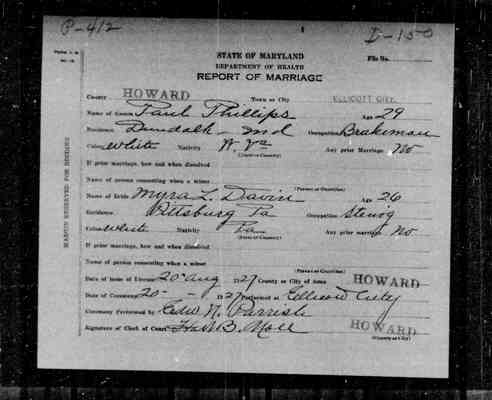 P-412
D-150
STATE OF MARYLAND
DEPARTMENT OF HEALTH
File No.
REPORT OF MARRIAGE
County HOWARD Town or City ELLICOTT CITY.
Name of Groom Paul Phillips Age 29
Residence Dundalk - Md Occupation Brakeman
Color White Nativity W. Va Any prior Marriage No
(State or Country)
If prior marriage, how and when dissolved
Name of person consenting when a minor
(Parent or Guardian)
Name of Bride Myra L. Davin Age 26
Residence Pittsburg Pa Occupation Stenog
Color White Nativity Pa Any prior marriage No
(State or Country)
If prior marriage, how and when dissolved
Name of person consenting when a minor
(Parent or Guardian)
Date of issue of License 20 Aug 1927 County or City of Issue HOWARD
Date of Ceremony 20 - - 1927 Performed at Ellicott City
Ceremony Performed by N. Parrish
Signature of Clerk of Court B. HOWARD
(County or City)
MARGIN RESERVED FOR BINDING